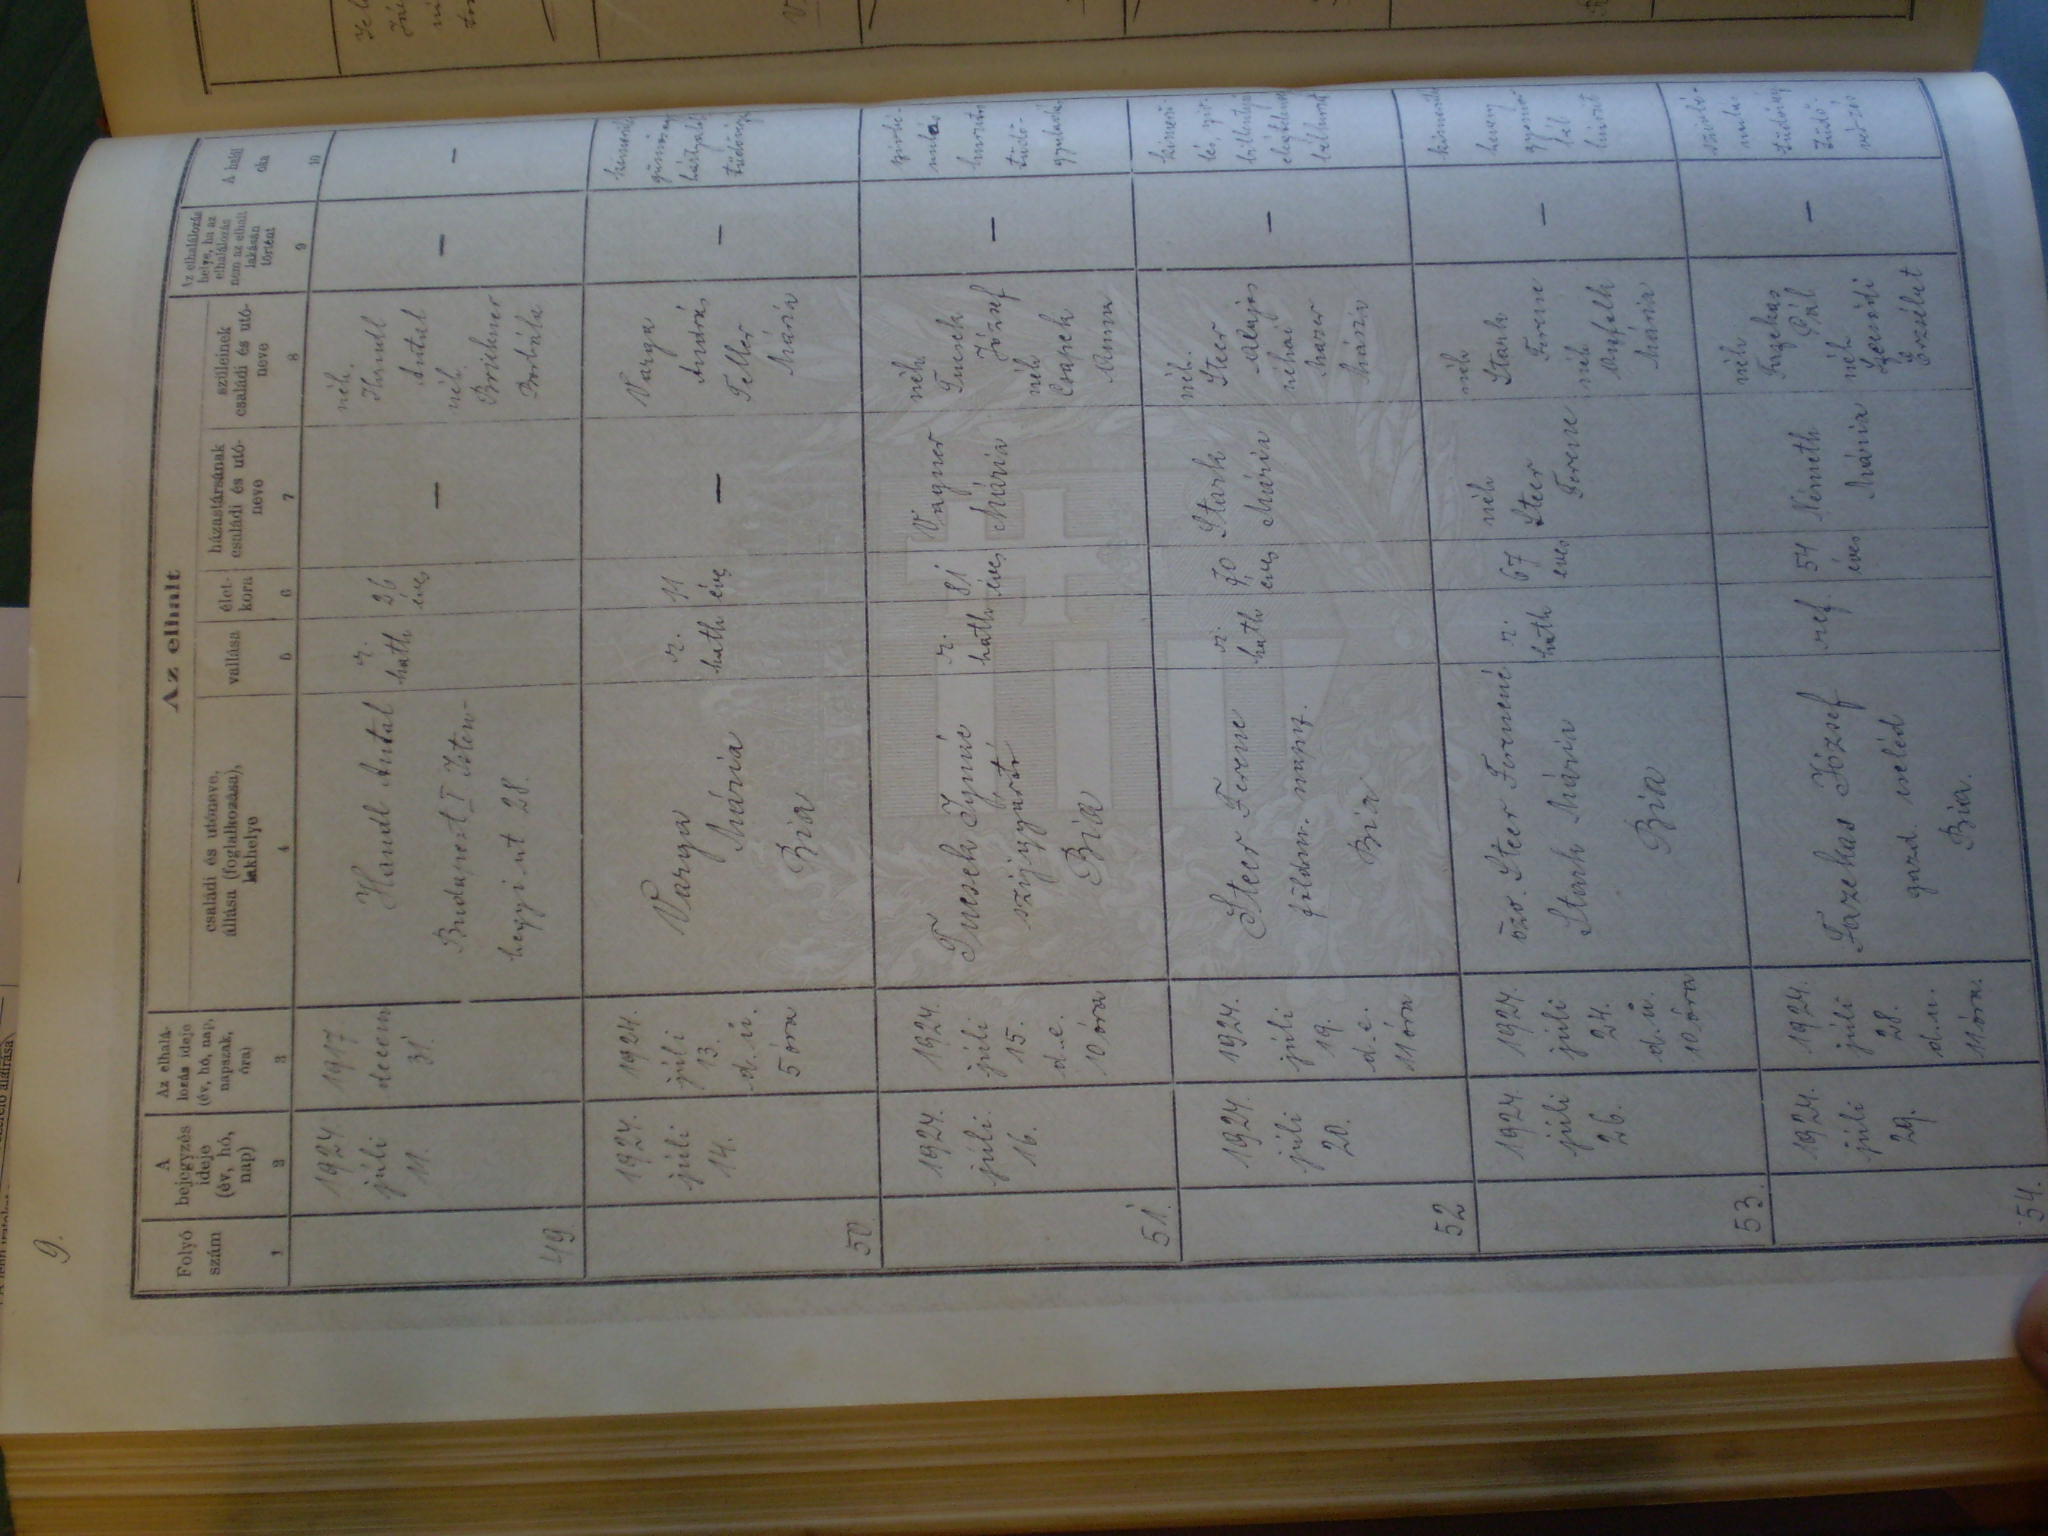 9.
Az elhalt
Folyó
szám
A
bejegyzés
ideje
(év, hó,
nap)
Az elhalá-
lozás ideje
(év, hó, nap,
napszak,
óra)
családi és utóneve,
állása (foglalkozása),
lakhelye
vallása
élet-
kora
házastársának
családi és utó-
neve
szüleinek
családi és utó-
neve
Az elhalálozás
helye, ha az
elhalálozás
nem az elhalt
lakásán
történt
A halál
oka
1
2
3
4
5
6
7
8
9
10
49.
1924.
júli
11.
1917
decem
31.
Handl Antal
Budapest I Isten-
hegyi út 28.
r.
kath
26
éves
—
néh.
Handl
Antal
néh.
Brükner
Borbála
—
—
50.
1924.
júli
14.
1924.
júli
13.
d. u.
5 óra
Varga
Mária
Bia
r.
kath
11
éves
—
Varga
András
Teller
Mária
—
51.
1924.
júli.
16.
1924.
júli
15.
d. e.
10 óra
Tucsek Ignác
szíjgyártó
Bia
r.
kath
81
éves
Vagner
Mária
néh.
Tucsek
József
néh
Csapek
Anna
—
tüdő-
52
1924.
júli
20.
1924.
júli
19.
d. e.
11 óra
Steer Ferenc
földm. napsz.
Bia
r.
kath
70
éves
Stark
Mária
néh.
Steer
Alajos
néhai
Mária
—
53.
1924
júli
26.
1924.
júli
24.
d. u.
10 óra
özv. Steer Ferencné
Stark Mária
Bia
r.
kath
67
éves
néh
Steer
Ferenc
néh
Stark
Ferenc
néh
Mária
—
54.
1924.
júli
29.
1924.
júli
28.
d. u.
11 óra.
Fazekas József
gazd. cseléd
Bia.
ref.
54
éves
Németh
Mária
néh
Fazekas
Pál
néh
Erzsébet
—